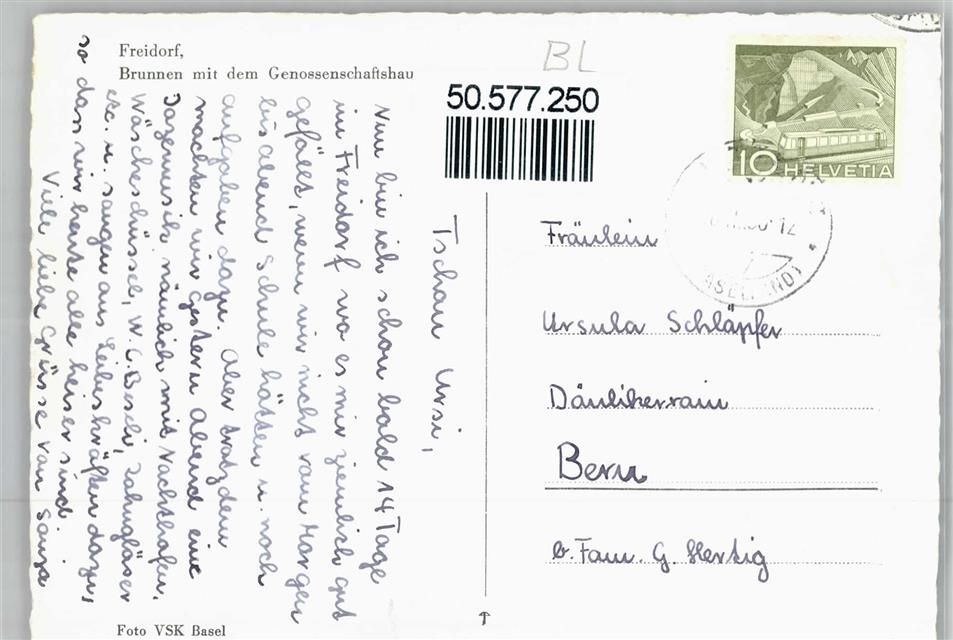 Freidorf,
Brunnen mit dem Genossenschaftshau
BL
50.577.250
10 HELVETIA
Tschau Ursi,
Nun bin ich schon bald 14 Tage
im Freidorf wo es mir ziemlich gut
gefällt, wenn wir nicht vom Morgen
bis abend Schule hätten u. noch
aufgaben dazu. Aber trotzdem
machten wir gestern Abend eine
Jazzmusik nämlich mit Nachthafen,
Wäscheschüssel, W.C. Beseli, Zahngläser
etc. u. sangen aus Leibeskräften dazu,
so dass wir heute alle heiser sind.
Viele liebe Grüsse von
Fräulein
Ursula Schläpfer
Bern
b. Fam. G. Hertig
Foto VSK Basel